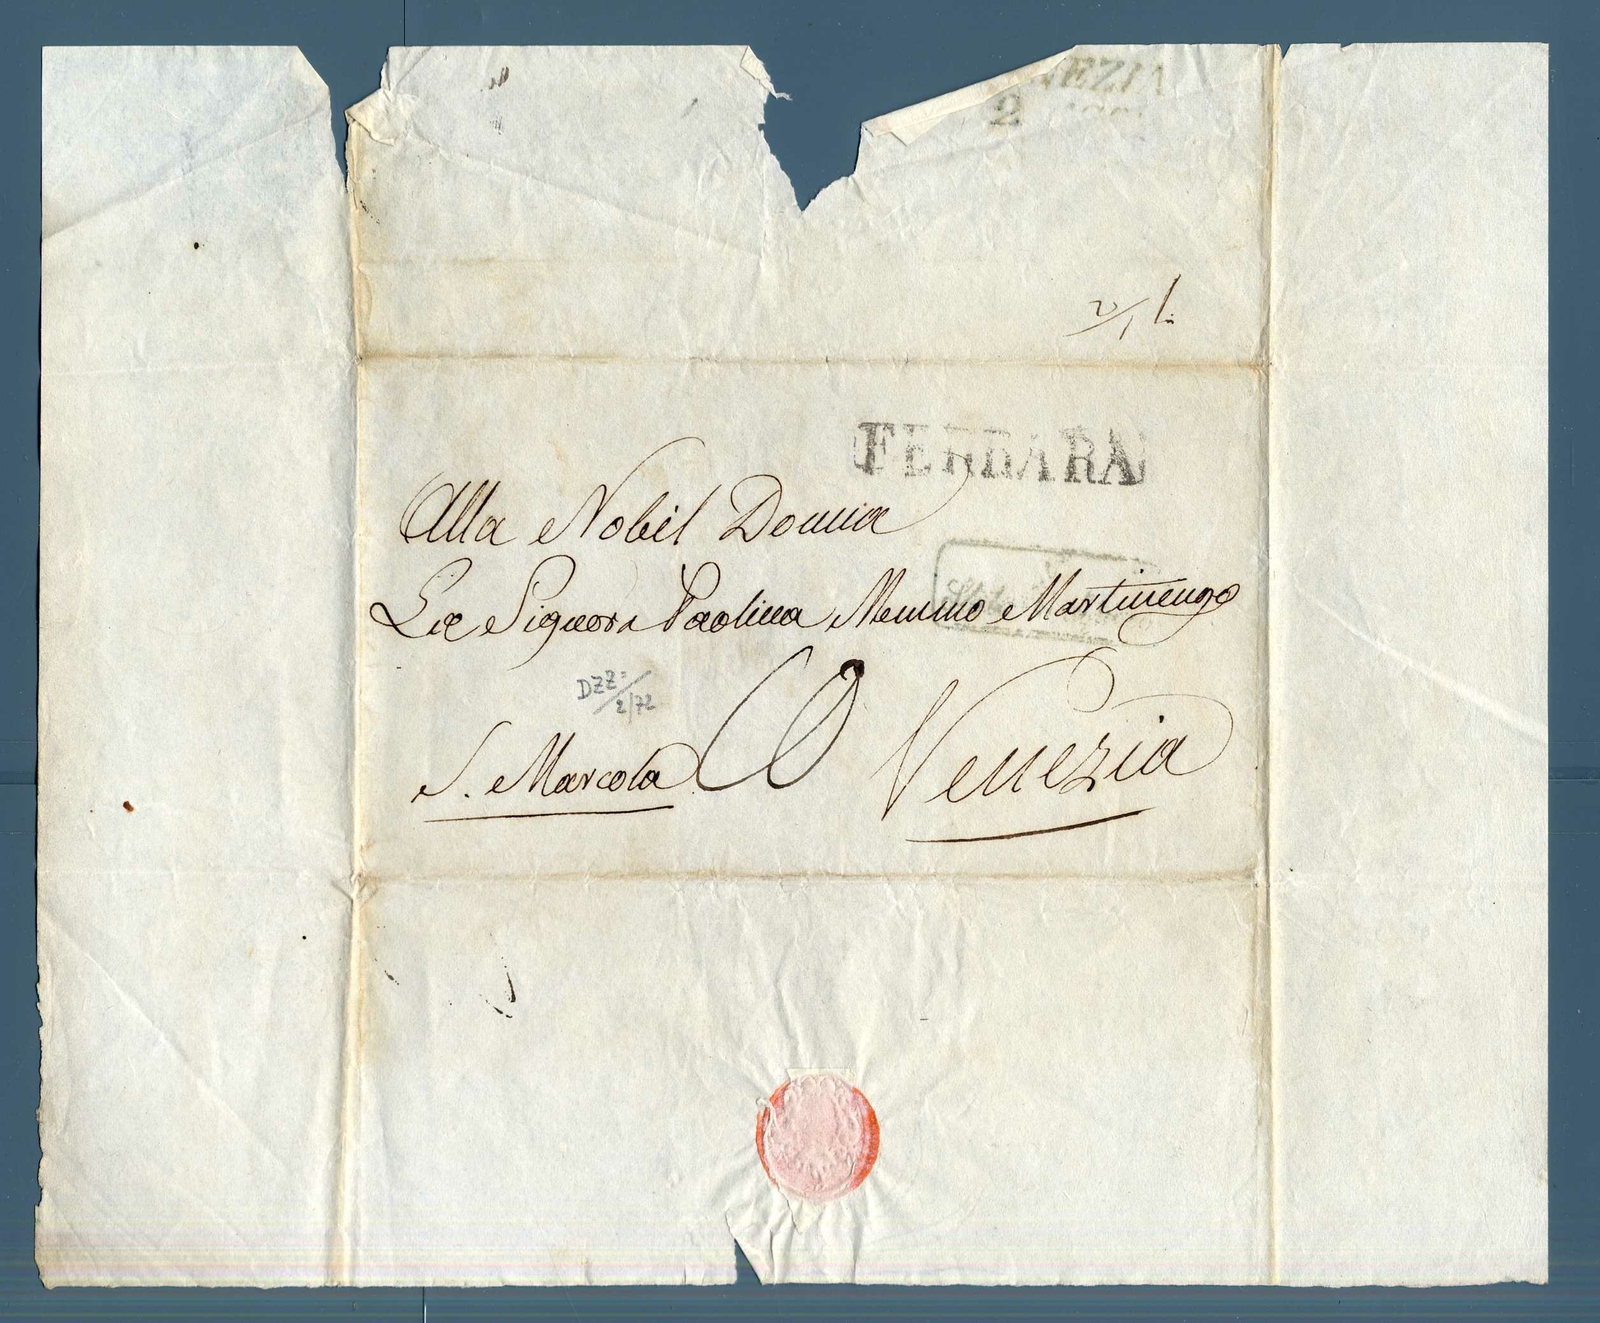 2
FERRARA
Alla Nobil Donna
La Signora Paolina Memmo Martinengo
DZZ:
2/72
S. Marcola
Venezia